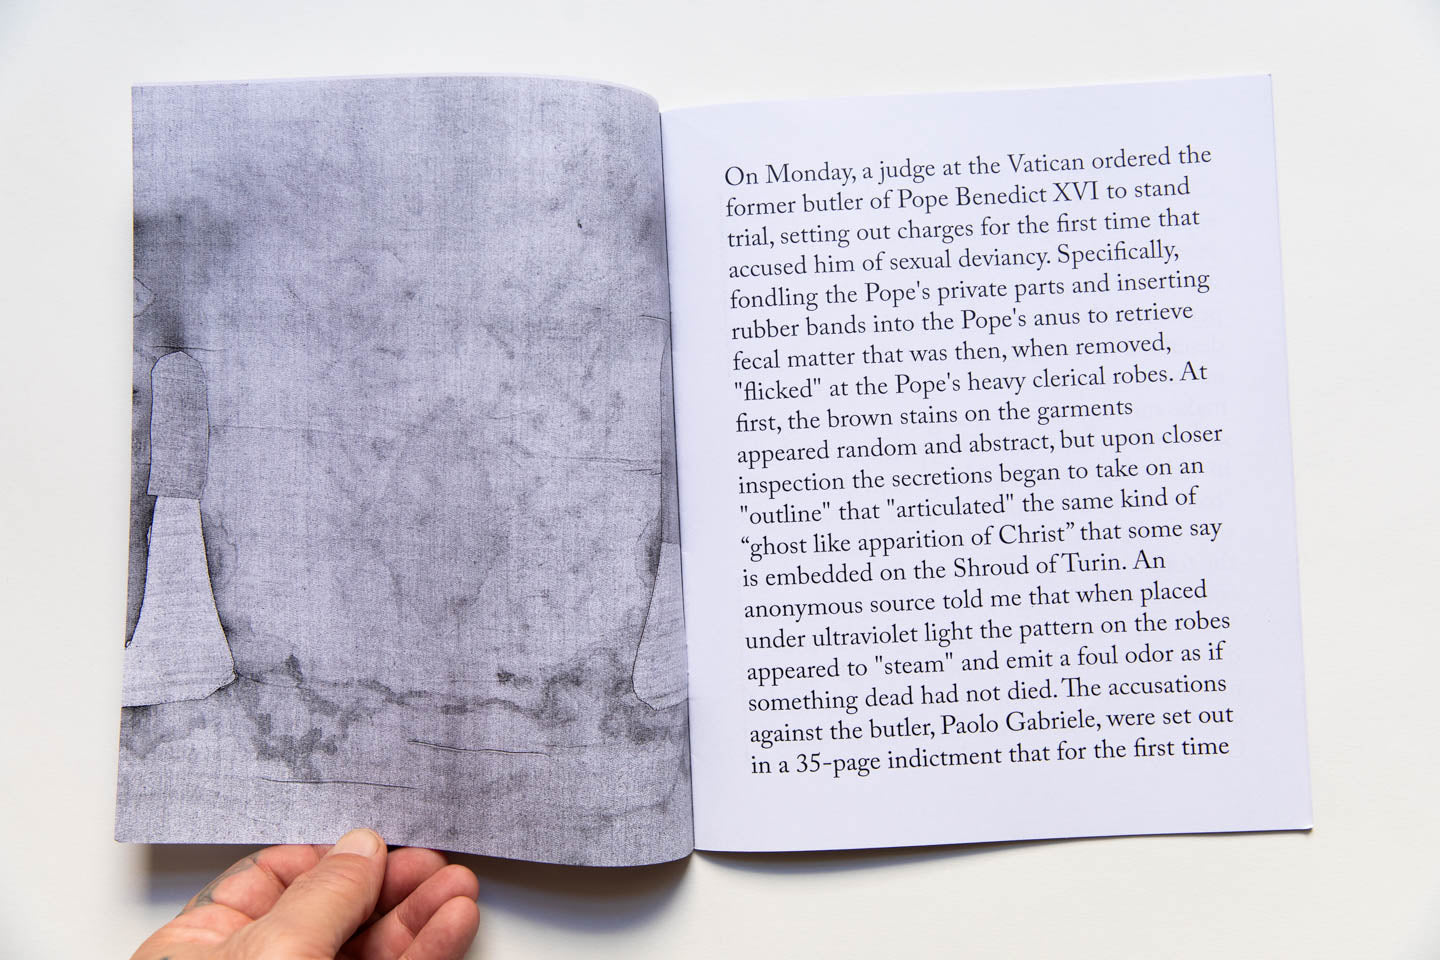 On Monday, a judge at the Vatican ordered the
former butler of Pope Benedict XVI to stand
trial, setting out charges for the first time that
accused him of sexual deviancy. Specifically,
fondling the Pope's private parts and inserting
rubber bands into the Pope's anus to retrieve
fecal matter that was then, when removed,
"flicked" at the Pope's heavy clerical robes. At
first, the brown stains on the garments
appeared random and abstract, but upon closer
inspection the secretions began to take on an
"outline" that "articulated" the same kind of
“ghost like apparition of Christ” that some say
is embedded on the Shroud of Turin. An
anonymous source told me that when placed
under ultraviolet light the pattern on the robes
appeared to "steam" and emit a foul odor as if
something dead had not died. The accusations
against the butler, Paolo Gabriele, were set out
in a 35-page indictment that for the first time